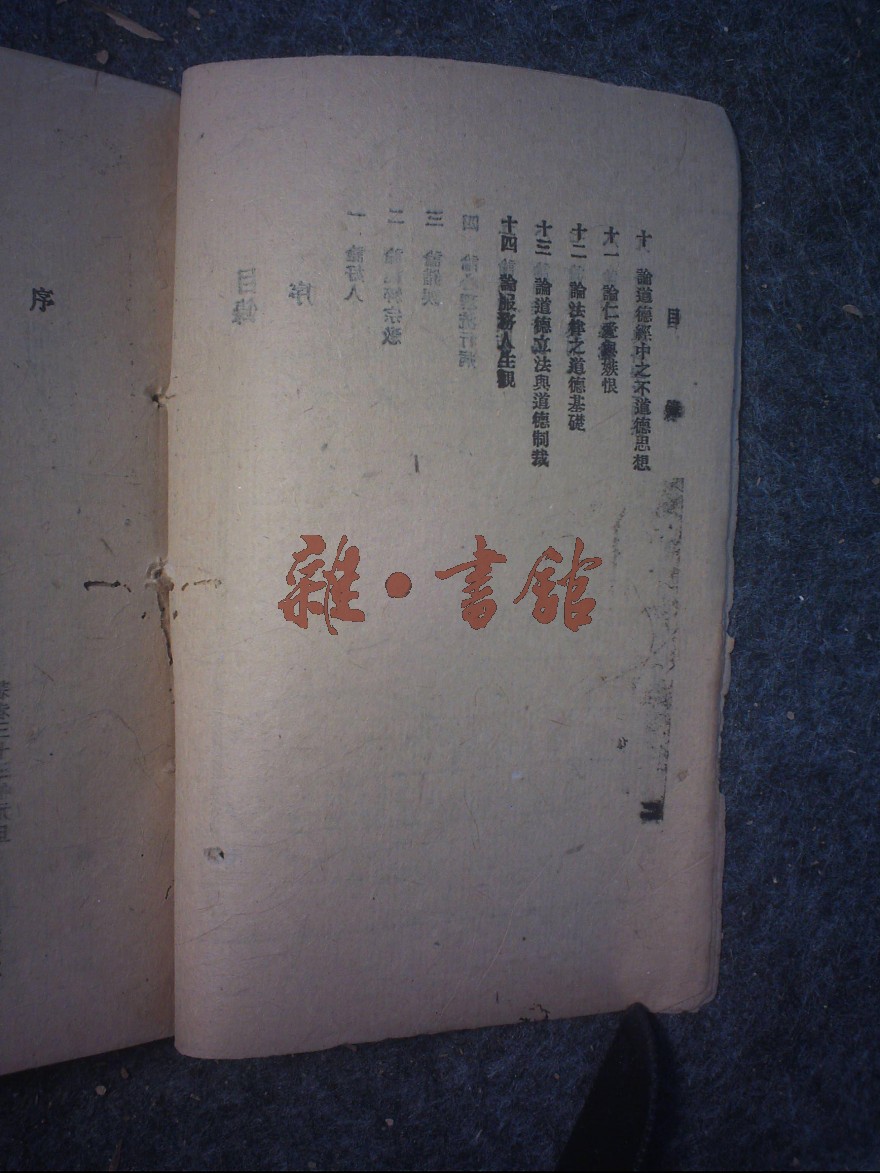 目錄
十 論道德經中之不道德思想
十一 論仁愛與嫉恨
十二 論法律之道德基礎
十三 論道德立法與道德制裁
十四 論服務人生觀
二
序
目錄
序
一 論好人
二
宗教
三
四
流行病
雜·書館